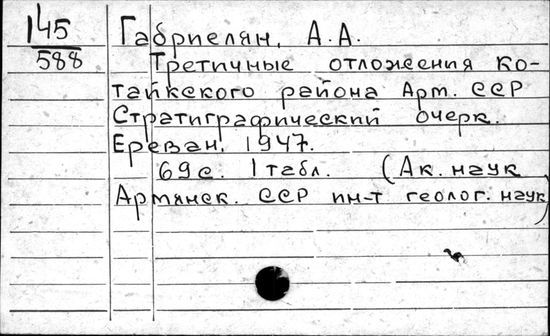 145
588
Габриелян, А.А.
Третичные отложения Ко-
тайкского района Арм. ССР
Стратиграфический очерк.
Ереван. 1947.
69с. 1 табл. (Ак. наук
Армянск. ССР ин-т геолог. наук)